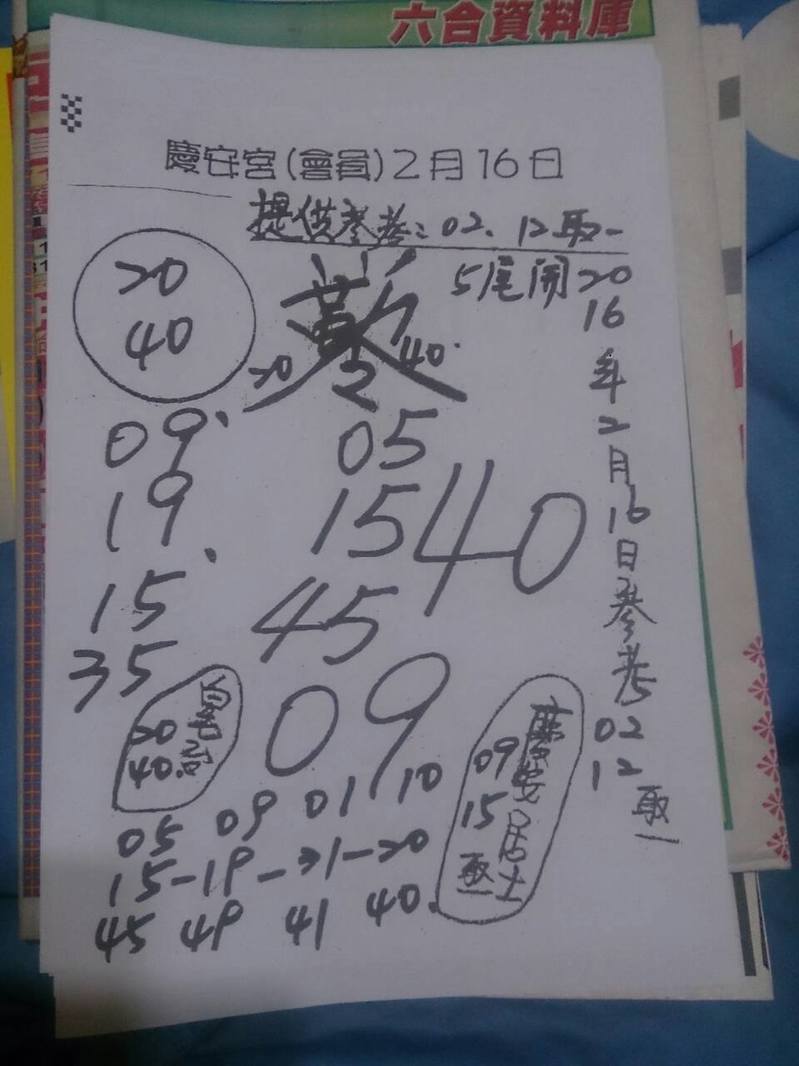 六合資料庫
慶安宮(會員)2月16日
提供參考:02、12取一
5尾開20
16
年
2
月
16
日
參
考
02
12
取一
20
40
20 2 40
09
19
15
35
05
15
45
40
09
20
40
慶安居士
09
15
取一
05 09 01 10
15-19-31-20
45 49 41 40